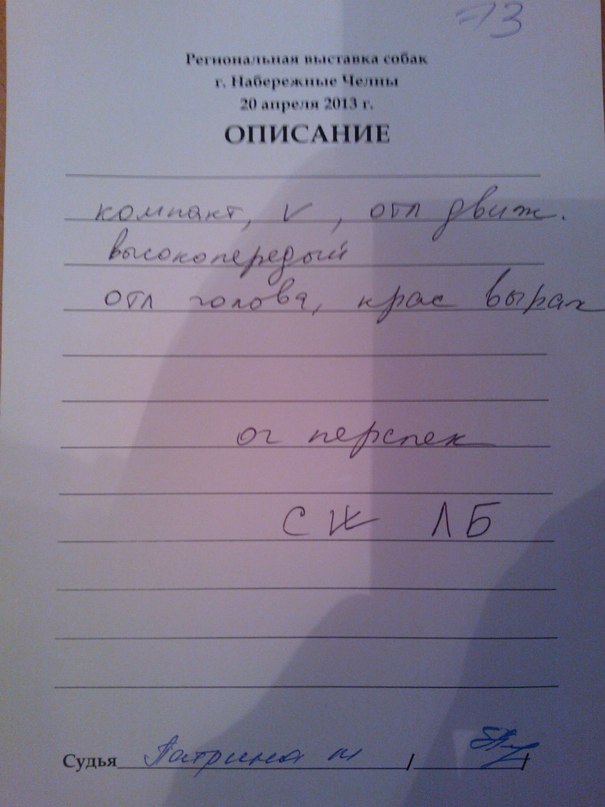 73
Региональная выставка собак
г. Набережные Челны
20 апреля 2013 г.
ОПИСАНИЕ
компакт, V, отл движ.
высокопередый
отл голова, крас выраж
оч перспек
CW ЛБ
Судья Патрина / /